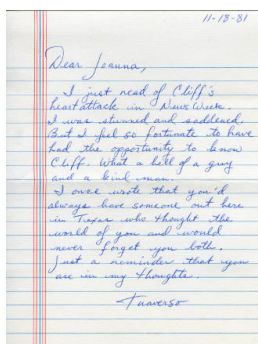 11-18-81
Dear Jeanna,
I just read of Cliff's
heart attack in News Week.
I was stunned and saddened.
But I feel so fortunate to have
had the opportunity to know
Cliff. What a hell of a guy
and a kind man.
I once wrote that you'd
always have someone out here
in Texas who thought the
world of you and would
never forget you both.
Just a reminder that you
are in my thoughts.